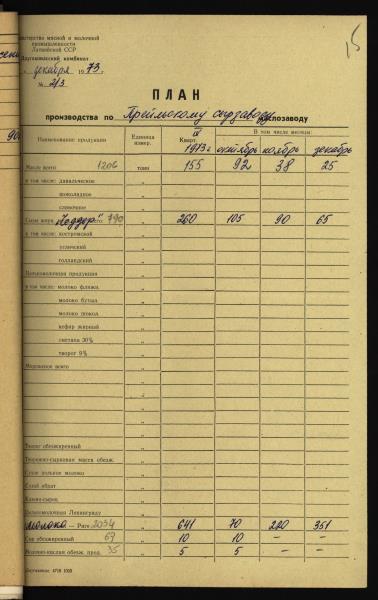 15
Министерство мясной и молочной
промышленности
Латвийской ССР
Даугавпилсский комбинат
„ декабря 1973 г.
№ 2/3
ПЛАН
производства по Прейльскому сырзаводу маслозаводу
Наименование продукции Единица измер. IV Кварт. 1973 г. В том числе месяцы:
октябрь ноябрь декабрь
Масло всего 1206 тонн 155 92 38 25
в том числе: давальческое „
шоколадное „
сливочное „
Сыры жирн. "Чеддер" всего: 790 „ 260 105 90 65
в том числе: костромской „
угличский „
голландский „
Цельномолочная продукция „
в том числе: молоко фляжн. „
молоко бутыл. „
молоко шокол. „
кефир жирный „
сметана 30% „
творог 9% „
Мороженое всего „
„
„
„
Творог обезжиренный „
Творожно-сырковая масса обезж. „
Сухое цельное молоко „
Сухой обрат „
Казеин-сырец „
Цельномолочная Ленинграду „
молоко — Риге 2034 „ 641 70 220 351
Сыр обезжиренный 67 „ 10 10 – –
Молочно-кислая обезж. прод. 35 „ 5 5 – –